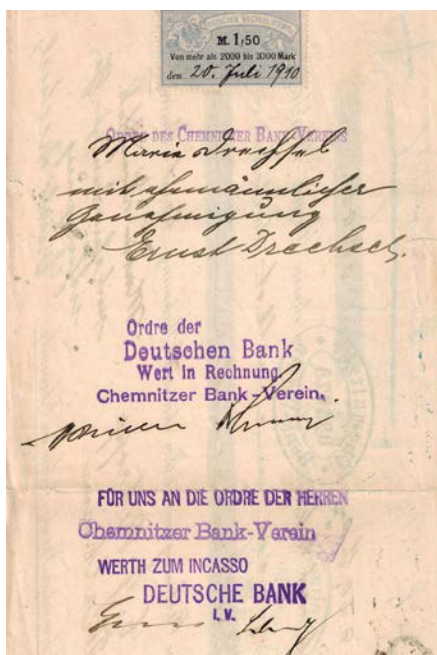 DEUTSCHER WECHSEL-STEMPEL
M. 1,50
Von mehr als 2000 bis 3000 Mark
den 20. Juli 1910
ORDRE DES CHEMNITZER BANK-VEREINS
Marie Drechsel
mit ehemännlicher
Genehmigung
Ernst Drechsel.
Ordre der
Deutschen Bank
Wert in Rechnung
Chemnitzer Bank-Verein.
FÜR UNS AN DIE ORDRE DER HERREN
Chemnitzer Bank-Verein
WERTH ZUM INCASSO
DEUTSCHE BANK
I.V.